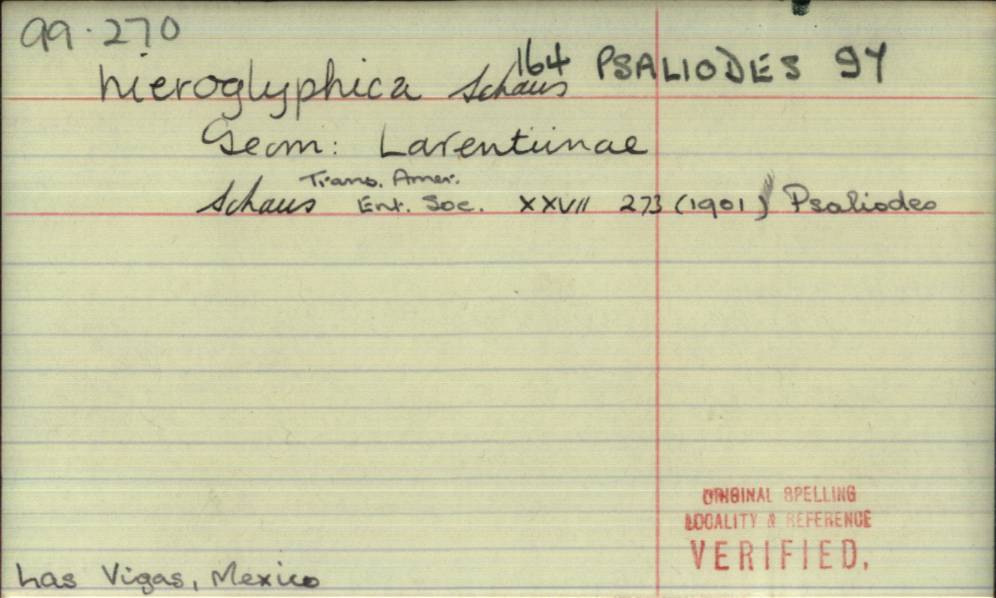 99.270
hieroglyphica Schaus 164 PSALIODES 94
Geom: Larentiinae
Schaus Trans. Amer. Ent. Soc. XXVII 273 (1901) Psaliodes
ORIGINAL SPELLING
LOCALITY & REFERENCE
VERIFIED.
Las Vigas, Mexico